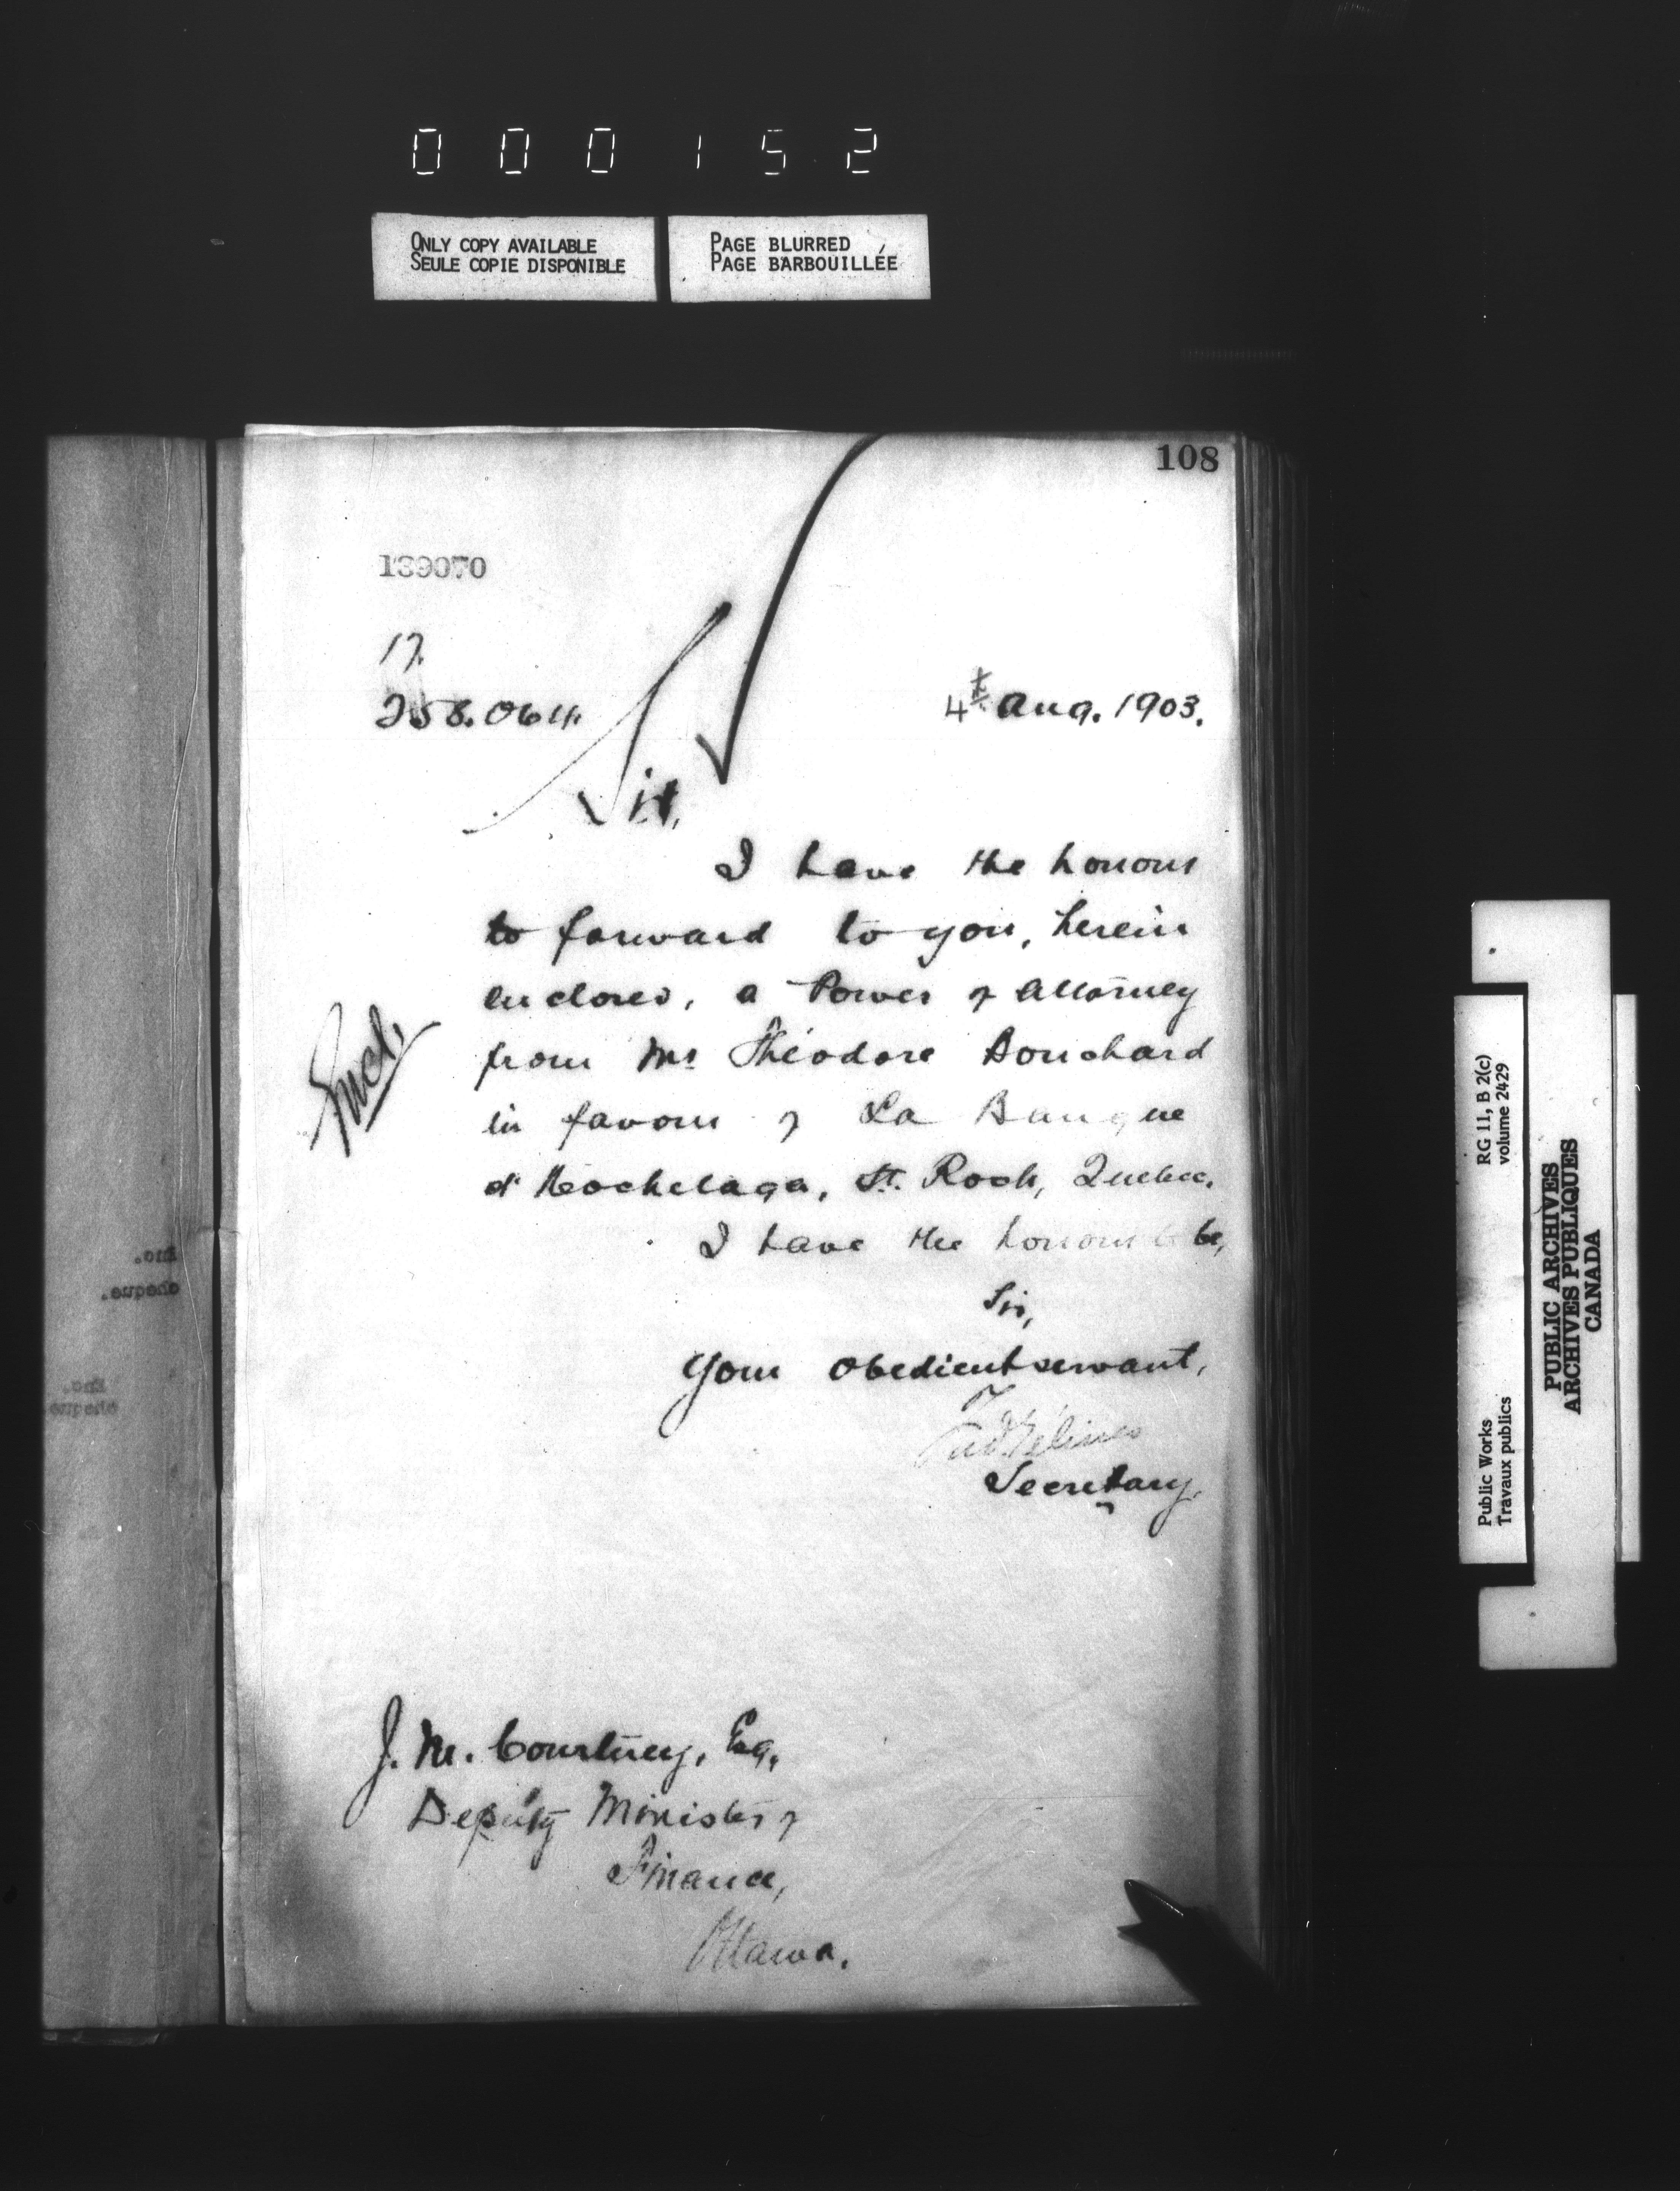 000152
ONLY COPY AVAILABLE
SEULE COPIE DISPONIBLE
PAGE BLURRED
PAGE BARBOUILLÉE
108
139070
17.
258.064.
4th Aug. 1903.
Sir,
I have the honour
to forward to you, herein
enclosed, a Power of Attorney
from Mr Théodore Bouchard
in favour of La Banque
d'Hochelaga, St. Roch, Quebec.
Encl.
I have the honour to be,
Sir,
Your obedient servant,
Fred Gélinas
Secretary.
J. M. Courtney, Esq.
Deputy Minister of
Finance,
Ottawa.
Enc.
cheque.
Enc.
cheque
RG 11, B 2(c)
volume 2429
Public Works
Travaux publics
PUBLIC ARCHIVES
ARCHIVES PUBLIQUES
CANADA